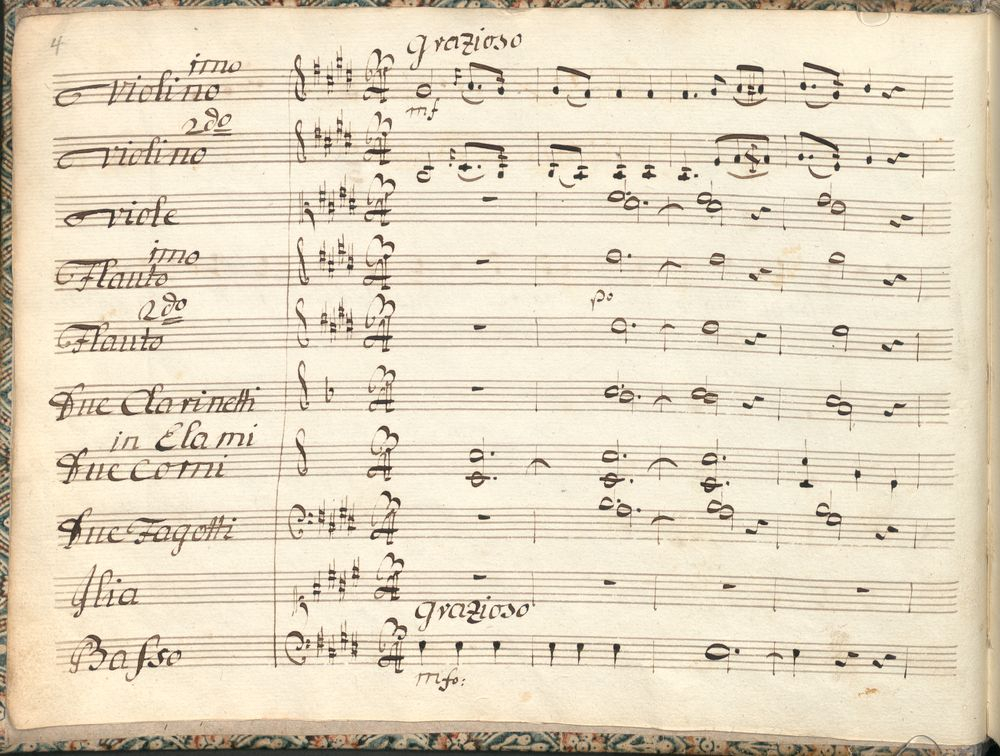 4
Grazioso
imo
Violino
mf
2do
Violino
Viole
imo
Flauto
po
2do
Flauto
Due Clarinetti
in Elami
Due Corni
Due Fagotti
Ilia
Grazioso
Basso
mfo: